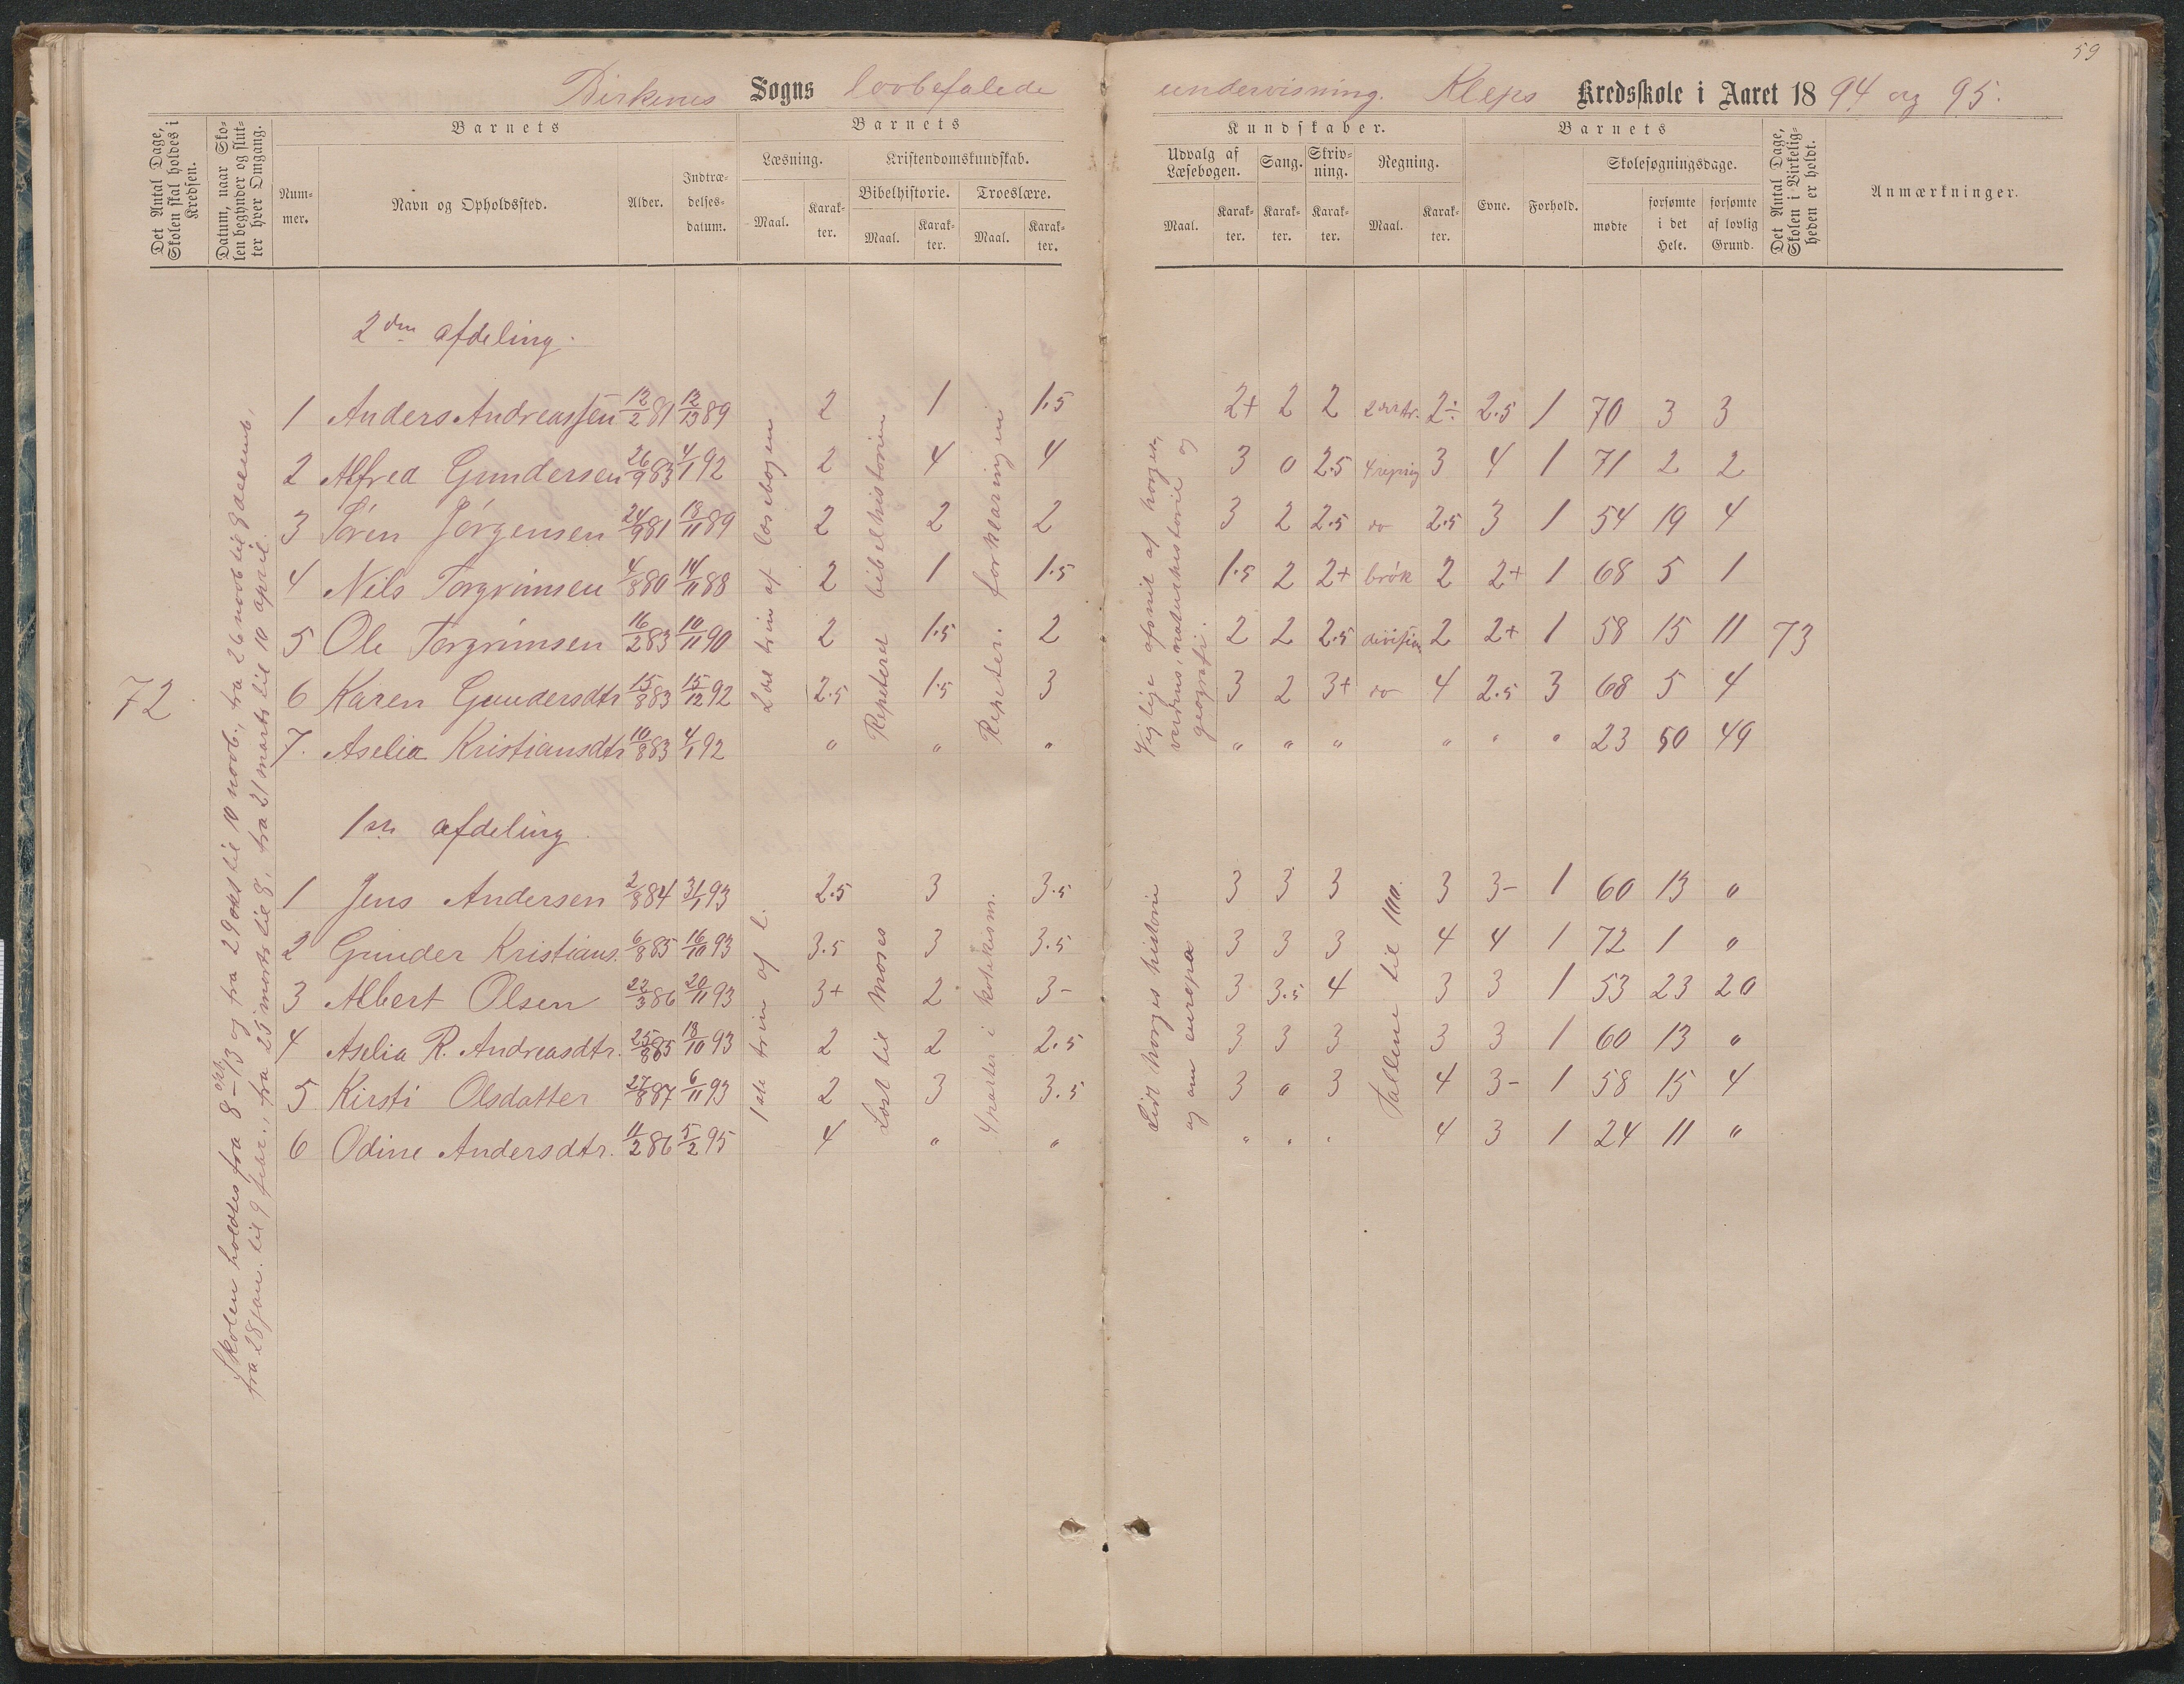 59
Birkenes Sogns lovbefalede undervisning. Kleps Kredsskole i Aaret 1894 og 95.
Det Antal Dage, Skolen skal holdes i Kredsen.
Datum, naar Skolen begynder og slutter hver Omgang.
Barnets
Nummer.
Navn og Opholdssted.
Alder.
Indtrædelsesdatum.
Barnets
Læsning.
Maal.
Karakter.
Kristendomskundskab.
Bibelhistorie.
Maal.
Karakter.
Troeslære.
Maal.
Karakter.
Kundskaber.
Udvalg af Læsebogen.
Maal.
Karakter.
Sang.
Karakter.
Skrivning.
Karakter.
Regning.
Maal.
Karakter.
Barnets
Evne.
Forhold.
Skolesøgningsdage.
mødte
forsømte i det Hele.
forsømte af lovlig Grund.
Det Antal Dage, Skolen i Virkeligheden er holdt.
Anmærkninger.
72
Skolen holdes fra 8-13 okt og fra 29 okt til 10 novb., fra 26 novb til 8 decemb,
fra 28 jan. til 9 febr., fra 25 marts til 8, fra 21 marts til 10 april.
2den afdeling.
2det trin af læsebogen
Repeteret bibelhistorien
Repeter. forklaringen
verdens, naturhistorie og
geografi.
1 Anders Andreassen 12/2 81 12/12 89 2 1 1.5 2+ 2 2 2÷ 2.5 1 70 3 3
2 Alfred Gundersen 26/9 83 4/1 92 2 4 4 3 0 2.5 3 4 1 71 2 2
3 Tøren Jörgensen 24/9 81 18/11 89 2 2 2 3 2 2.5 do 2.5 3 1 54 19 4
4 Nils Torgrimsen 4/8 80 14/11 88 2 1 1.5 1.5 2 2+ brøk 2 2+ 1 68 5 1
5 Ole Torgrimsen 16/2 83 10/11 90 2 1.5 2 2 2 2.5 division 2 2+ 1 58 15 11 73
6 Karen Gundersdtr 15/8 83 15/12 92 2.5 1.5 3 3 2 3+ do 4 2.5 3 68 5 4
7. Aselia Kristiansdtr 10/8 83 4/1 92 " " " " " " " " " 23 50 49
1ste afdeling.
1ste trin af l.
Læst til Moses
4 parter i katekism.
Lidt norges historie
og om europa
Tallene til 100.
1 Jens Andersen 2/8 84 31/1 93 2.5 3 3.5 3 3 3 3 3- 1 60 13 "
2 Gunder Kristians. 6/8 85 16/10 93 3.5 3 3.5 3 3 3 4 4 1 72 1 "
3 Albert Olsen 22/3 86 20/11 93 3+ 2 3- 3 3.5 4 3 3 1 53 23 20
4 Aselia R. Andreasdtr. 25/8 85 18/10 93 2 2 2.5 3 3 3 3 3 1 60 13 "
5 Kirsti Olsdatter 27/8 87 6/11 93 2 3 3.5 3 " 3 4 3- 1 58 15 4
6 Odine Andersdtr. 11/2 86 5/2 95 4 " " " " " 4 3 1 24 11 "